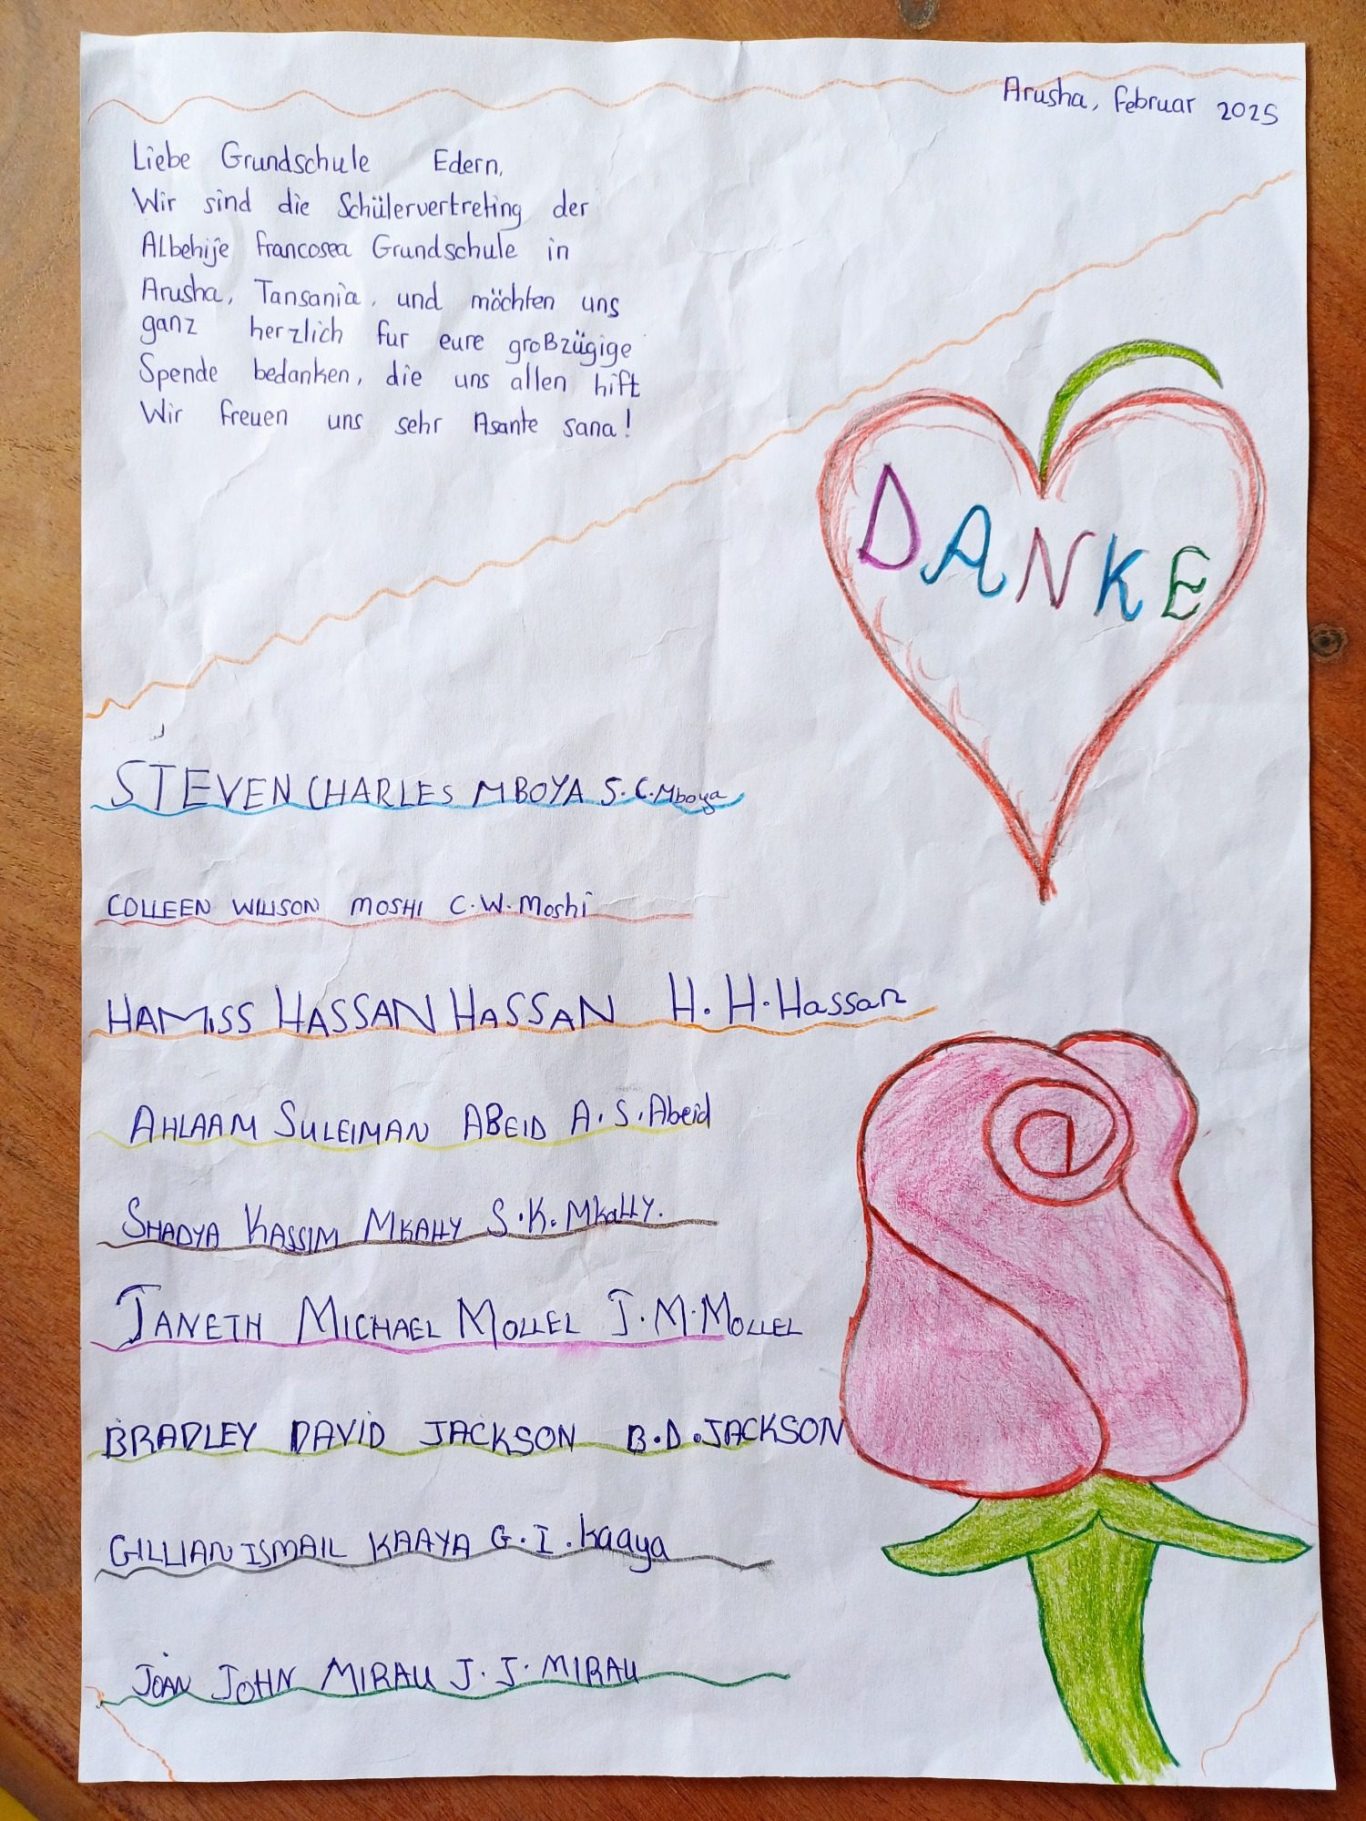 Arusha, Februar 2025
Liebe Grundschule Edern,
Wir sind die Schülervertreting der
Albehije francosea Grundschule in
Arusha, Tansania, und möchten uns
ganz herzlich fur eure großzügige
Spende bedanken, die uns allen hift
Wir freuen uns sehr Asante sana!
DANKE
STEVEN CHARLES MBOYA S.C.Mboya
COLLEEN WILLSON MOSHI C.W.Moshi
HAMISS HASSAN HASSAN H.H.Hassan
AHLAAM SULEIMAN ABEID A.S.Abeid
SHADYA KASSIM MKALLY S.K.MKaLLY.
JANETH MICHAEL MOLLEL J.M.MOLLEL
BRADLEY DAVID JACKSON B.D.JACKSON
GILLIAN ISMAIL KAAYA G.I.kaaya
JOAN JOHN MIRAU J.J.MIRAU